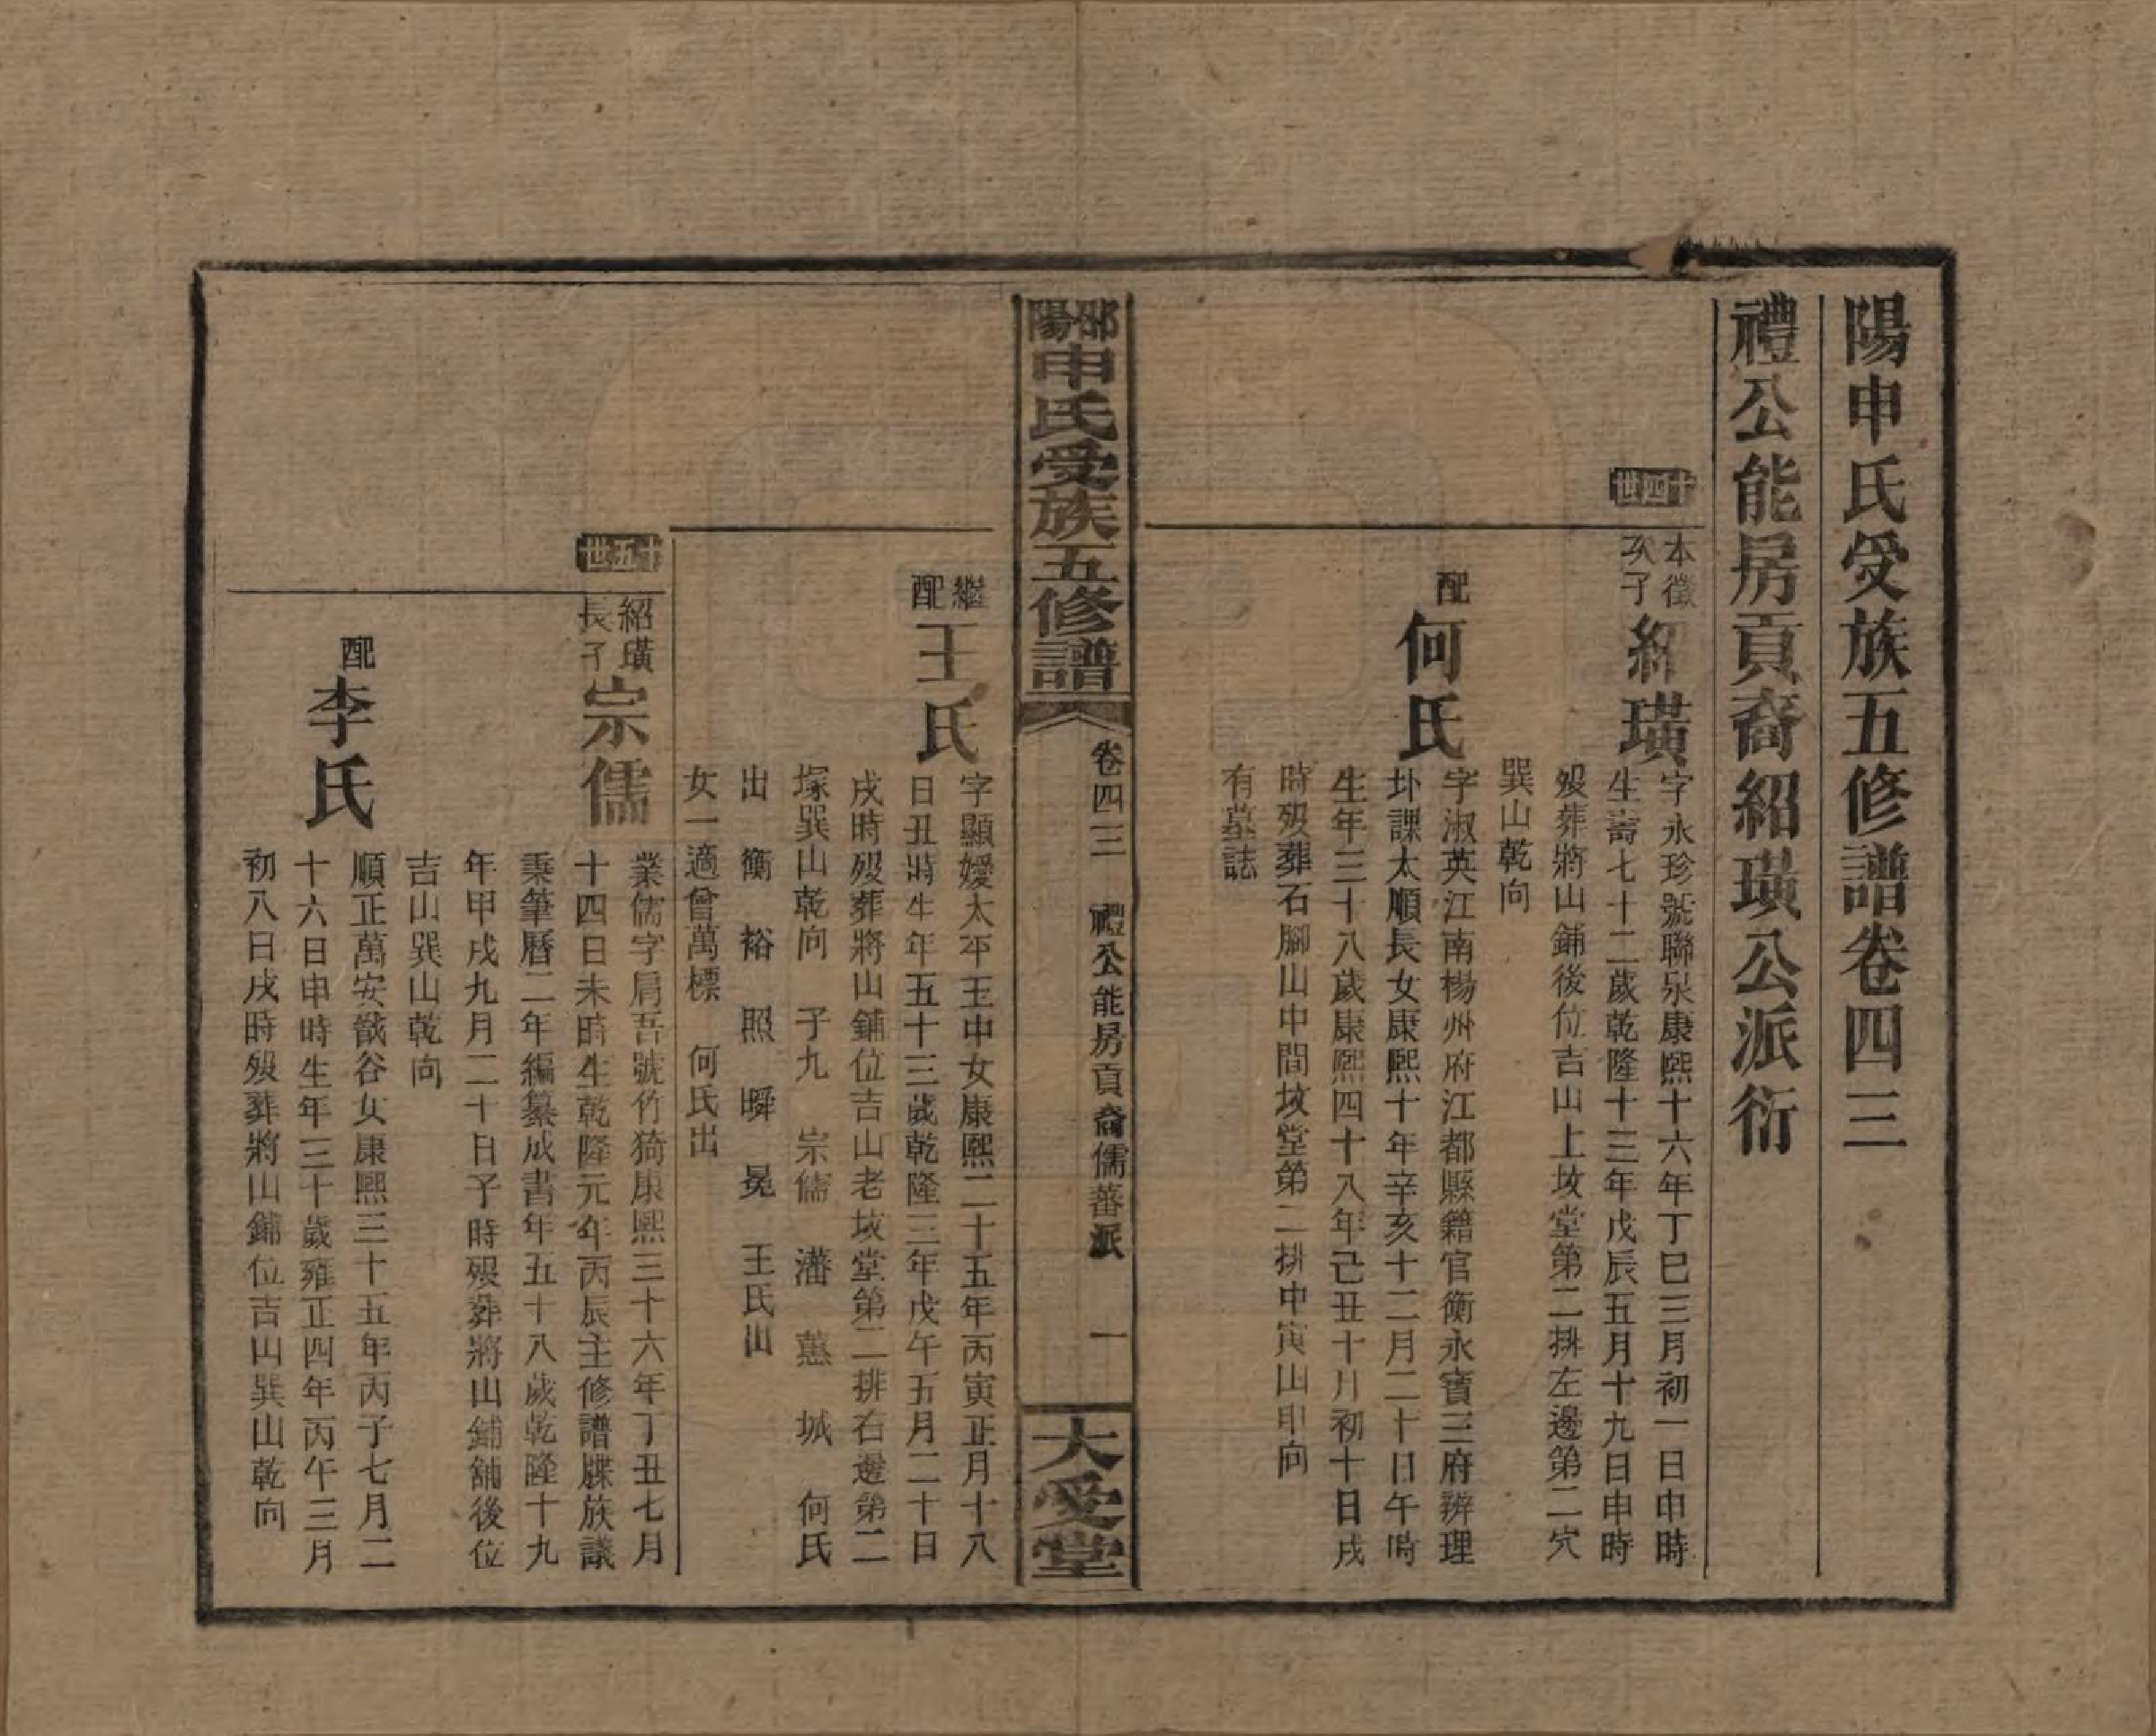 陽申氏受族五修譜卷四三
禮公能房貢裔紹璜公派衍
十四世
本徵
次子
紹璜
字永珍號聯泉康熙十六年丁巳三月初一日申時
生壽七十二歲乾隆十三年戊辰五月十九日申時
歿葬將山鋪後位吉山上坟堂第二排左邊第二穴
巽山乾向
配
何氏
字淑英江南楊州府江都縣籍官衡永寶三府辦理
圤課太順長女康熙十年辛亥十二月二十日午時
生年三十八歲康熙四十八年己丑十月初十日戌
時歿葬石腳山中間坟堂第二排中寅山申向
有墓誌
邵陽
申氏受族五修譜
卷四三 禮公能房貢裔儒蕃派 一
大受堂
繼配
王氏
字顯嬡太平王中女康熙二十五年丙寅正月十八
日丑時生年五十三歲乾隆三年戊午五月二十日
戌時歿葬將山鋪位吉山老坟堂第二排右邊第二
塚巽山乾向 子九 宗儒 藩 蕙 城 何氏
出 衡 裕 照 瞬 冕 王氏出
女一適曾萬標 何氏出
十五世
紹璜
長子
宗儒
業儒字肩吾號竹猗康熙三十六年丁丑七月
十四日未時生乾隆元年丙辰主修譜牒族議
秉筆曆二年編纂成書年五十八歲乾隆十九
年甲戌九月二十日子時歿葬將山鋪舖後位
吉山巽山乾向
配
李氏
順正萬安戩谷女康熙三十五年丙子七月二
十六日申時生年三十歲雍正四年丙午三月
初八日戌時歿葬將山鋪位吉山巽山乾向